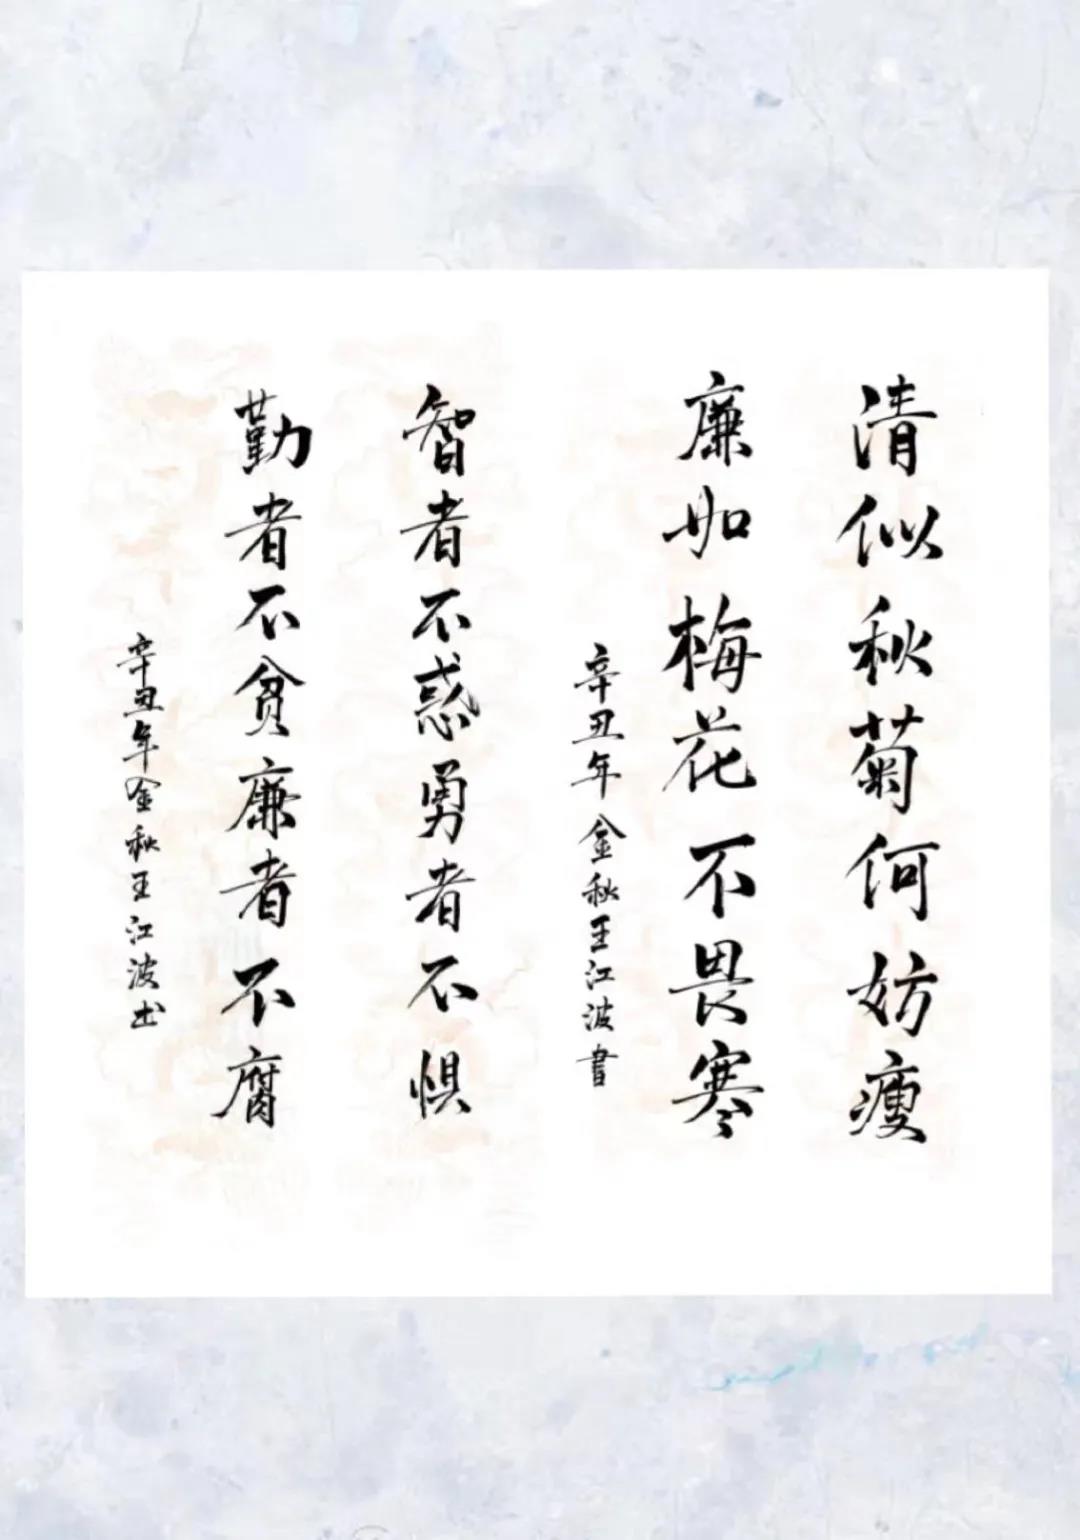 清似秋菊何妨瘦
廉如梅花不畏寒
辛丑年金秋王江波書
智者不惑勇者不惧
勤者不贫廉者不腐
辛丑年金秋王江波书